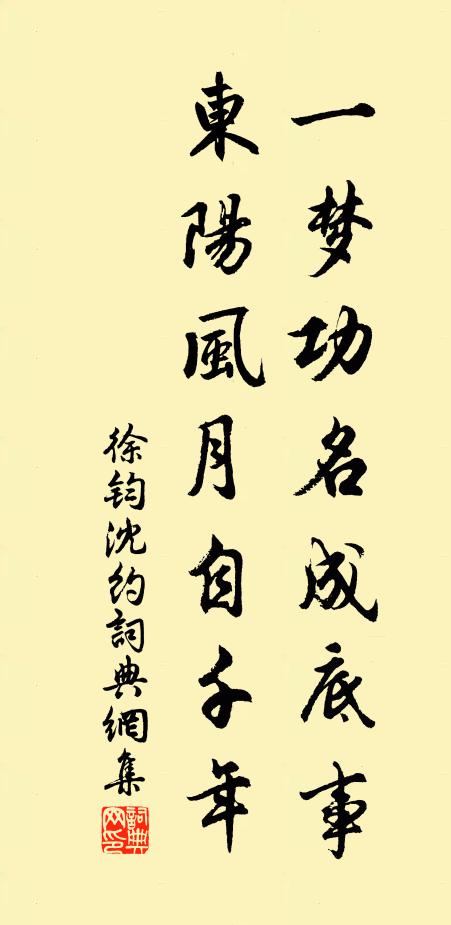 一梦功名成底事
東陽風月自千年
徐鈞沈約詞典網集
詞典网印